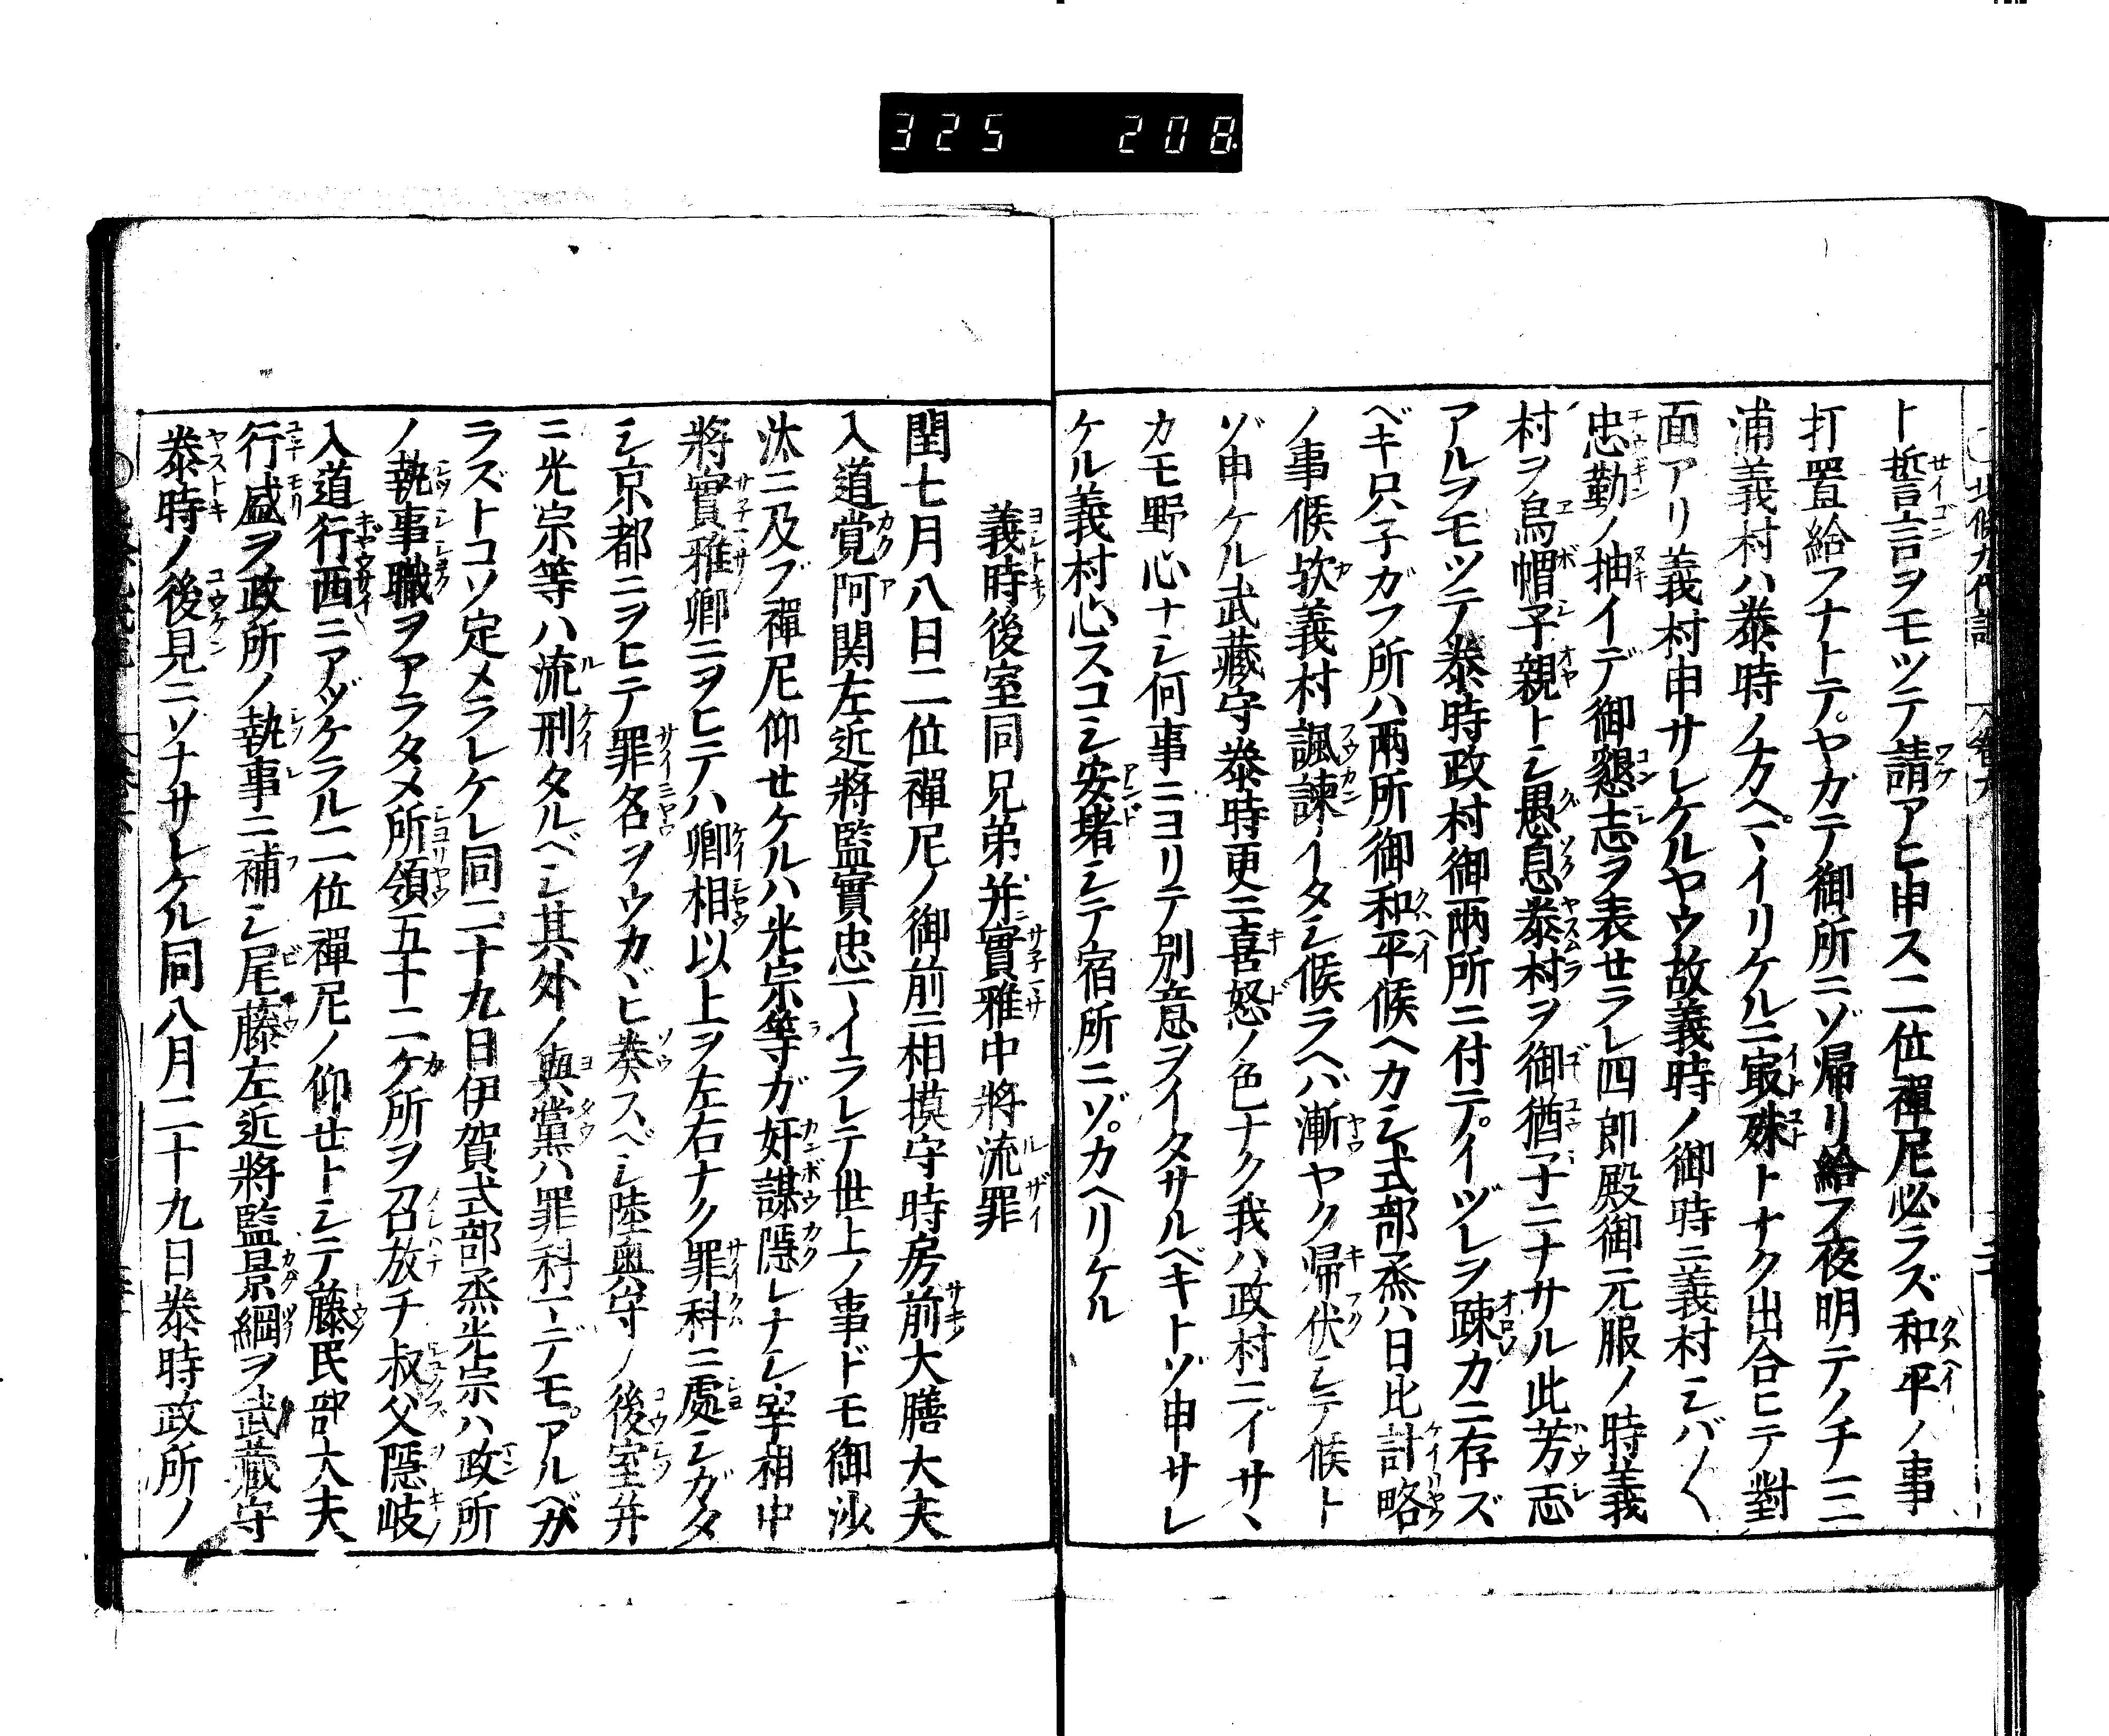 325 208
ト誓言ヲモツテ請アヒ申ス二位禪尼必ラズ和平ノ事
打置給フナトテヤガテ御所ニゾ帰リ給フ夜明テノチ三
浦義村ハ泰時ノ方ヘマイリケルニ最殊トナク出合ヒテ對
面アリ義村申サレケルヤウ故義時ノ御時ニ義村シバ〱
忠勤ノ抽イデ御懇志ヲ表セラレ四郎殿御元服ノ時義
村ヲ烏帽子親トシ愚息泰村ヲ御猶子ニナサル此芳志
アルヲモツテ泰時政村御兩所ニ付テイヅレヲ踈カニ存ズ
ベキ只子ガフ所ハ兩所御和平候ヘカシ式部烝ハ日比計略
ノ事候欤義村諷諫イタシ候ラヘバ漸ヤク帰伏シテ候ト
ゾ申ケル武藏守泰時更ニ喜怒ノ色ナク我ハ政村ニイサヽ
カモ野心ナシ何事ニヨリテ別意ヲイタサルベキトゾ申サレ
ケル義村心スコシ安堵シテ宿所ニゾカヘリケル
義時後室同兄弟并實雅中將流罪
閏七月八日二位禪尼ノ御前ニ相摸守時房前大膳大夫
入道覚阿関左近將監實忠マイラレテ世上ノ事ドモ御沙
汰ニ及ブ禪尼仰セケルハ光宗等ガ奸謀隠レナシ宰相中
將實雅卿ニヲヒテハ卿相以上ヲ左右ナク罪科ニ處シガタ
シ京都ニヲヒテ罪名ヲウカヾヒ奏スベシ陸奥守ノ後室并
ニ光宗等ハ流刑タルベシ其外ノ與黨ハ罪科マデモアルベカ
ラズトコソ定メラレケレ同二十九日伊賀式部烝光宗ハ政所
ノ執事職ヲアラタメ所領五十二ケ所ヲ召放チ叔父隠岐
入道行西ニアヅケラル二位禪尼ノ仰セトシテ藤民部大夫
行盛ヲ政所ノ執事ニ補シ尾藤左近將監景綱ヲ武藏守
泰時ノ後見ニソナサレケル同八月二十九日泰時政所ノ